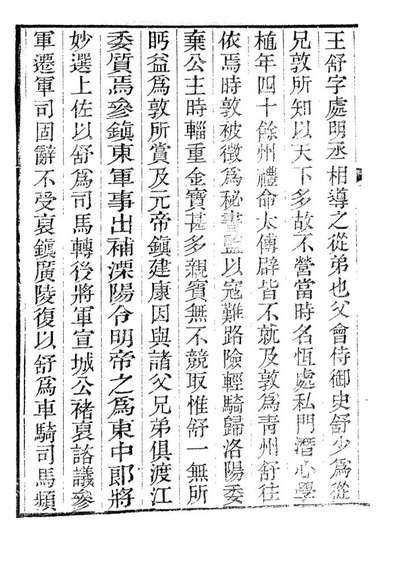 王舒字處明丞相導之從弟也父會侍御史舒少為從
兄敦所知以天下多故不營當時名恆處私門潛心學
植年四十餘州禮命太傅辟皆不就及敦為青州舒往
依焉時敦被徵為秘書監以寇難路險輕騎歸洛陽委
棄公主時輜重金寶甚多親賓無不競取惟舒一無所
眄益為敦所賞及元帝鎮建康因與諸父兄弟俱渡江
委質焉參鎮東軍事出補溧陽令明帝之為東中郎將
妙選上佐以舒為司馬轉後將軍宣城公褚裒諮議參
軍遷軍司固辭不受裒鎮廣陵復以舒為車騎司馬頻